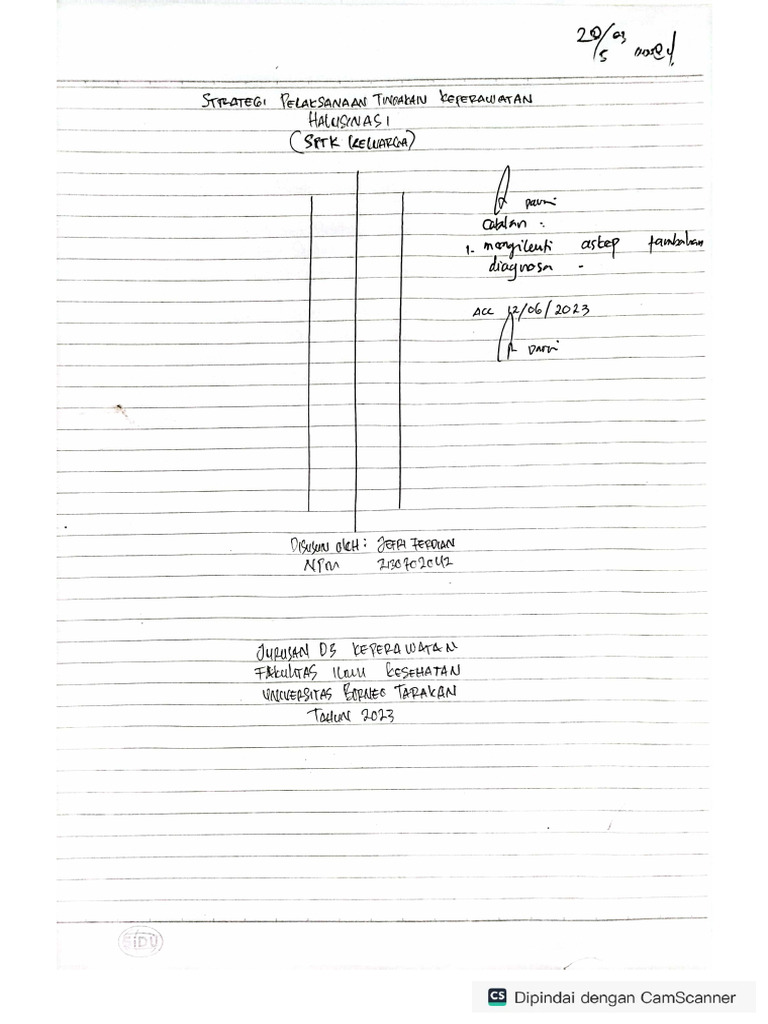 20/03
5
STRATEGI PELAKSANAAN TINDAKAN KEPERAWATAN
HALUSINASI
(SPTK KELUARGA)
Catatan :
1. mengikuti askep tambahan
diagnosa -
ACC 12/06/2023
Disusun oleh : JEFRI FERDIAN
NPM 2130702042
JURUSAN D3 KEPERAWATAN
FAKULTAS ILMU KESEHATAN
UNIVERSITAS BORNEO TARAKAN
TAHUN 2023
SIDU
CS Dipindai dengan CamScanner